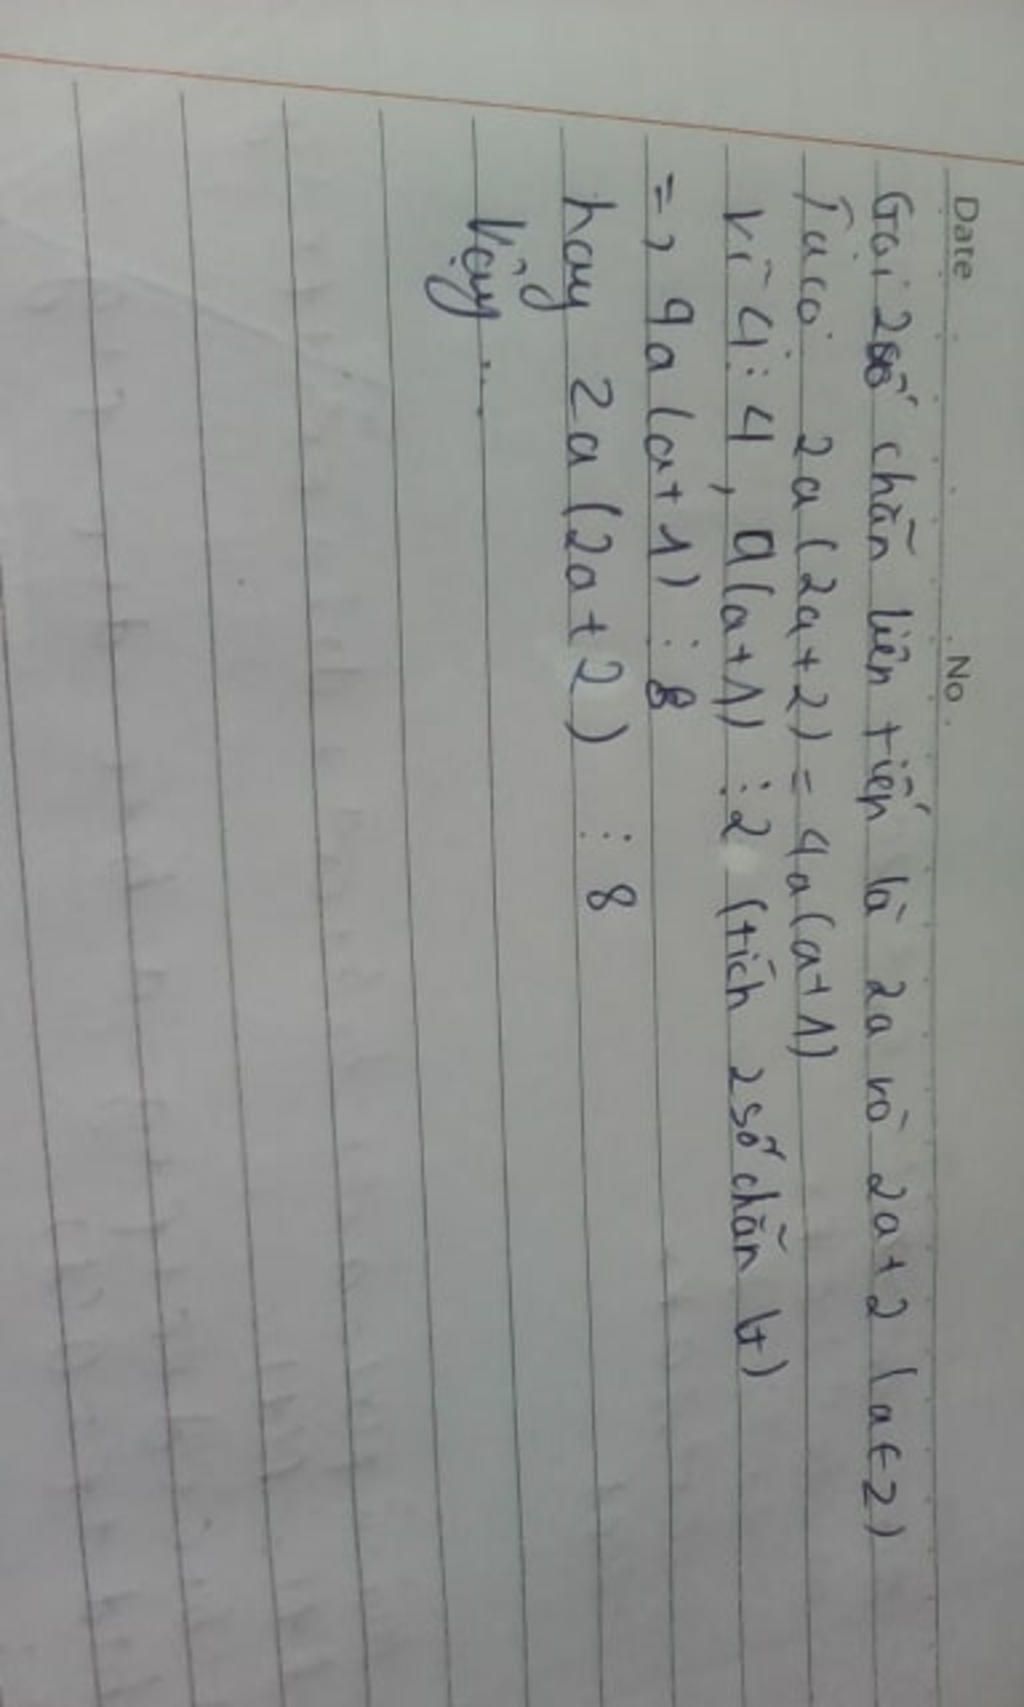 Date No.
Gọi 2 số chẵn liên tiến là 2a và 2a+2 (a∈Z)
Ta có: 2a(2a+2) = 4a(a+1)
Vì 4⋮4, a(a+1) ⋮2 (tích 2 số chẵn lt)
=> 4a(a+1) ⋮ 8
hay 2a(2a+2) ⋮ 8
Vậy ...